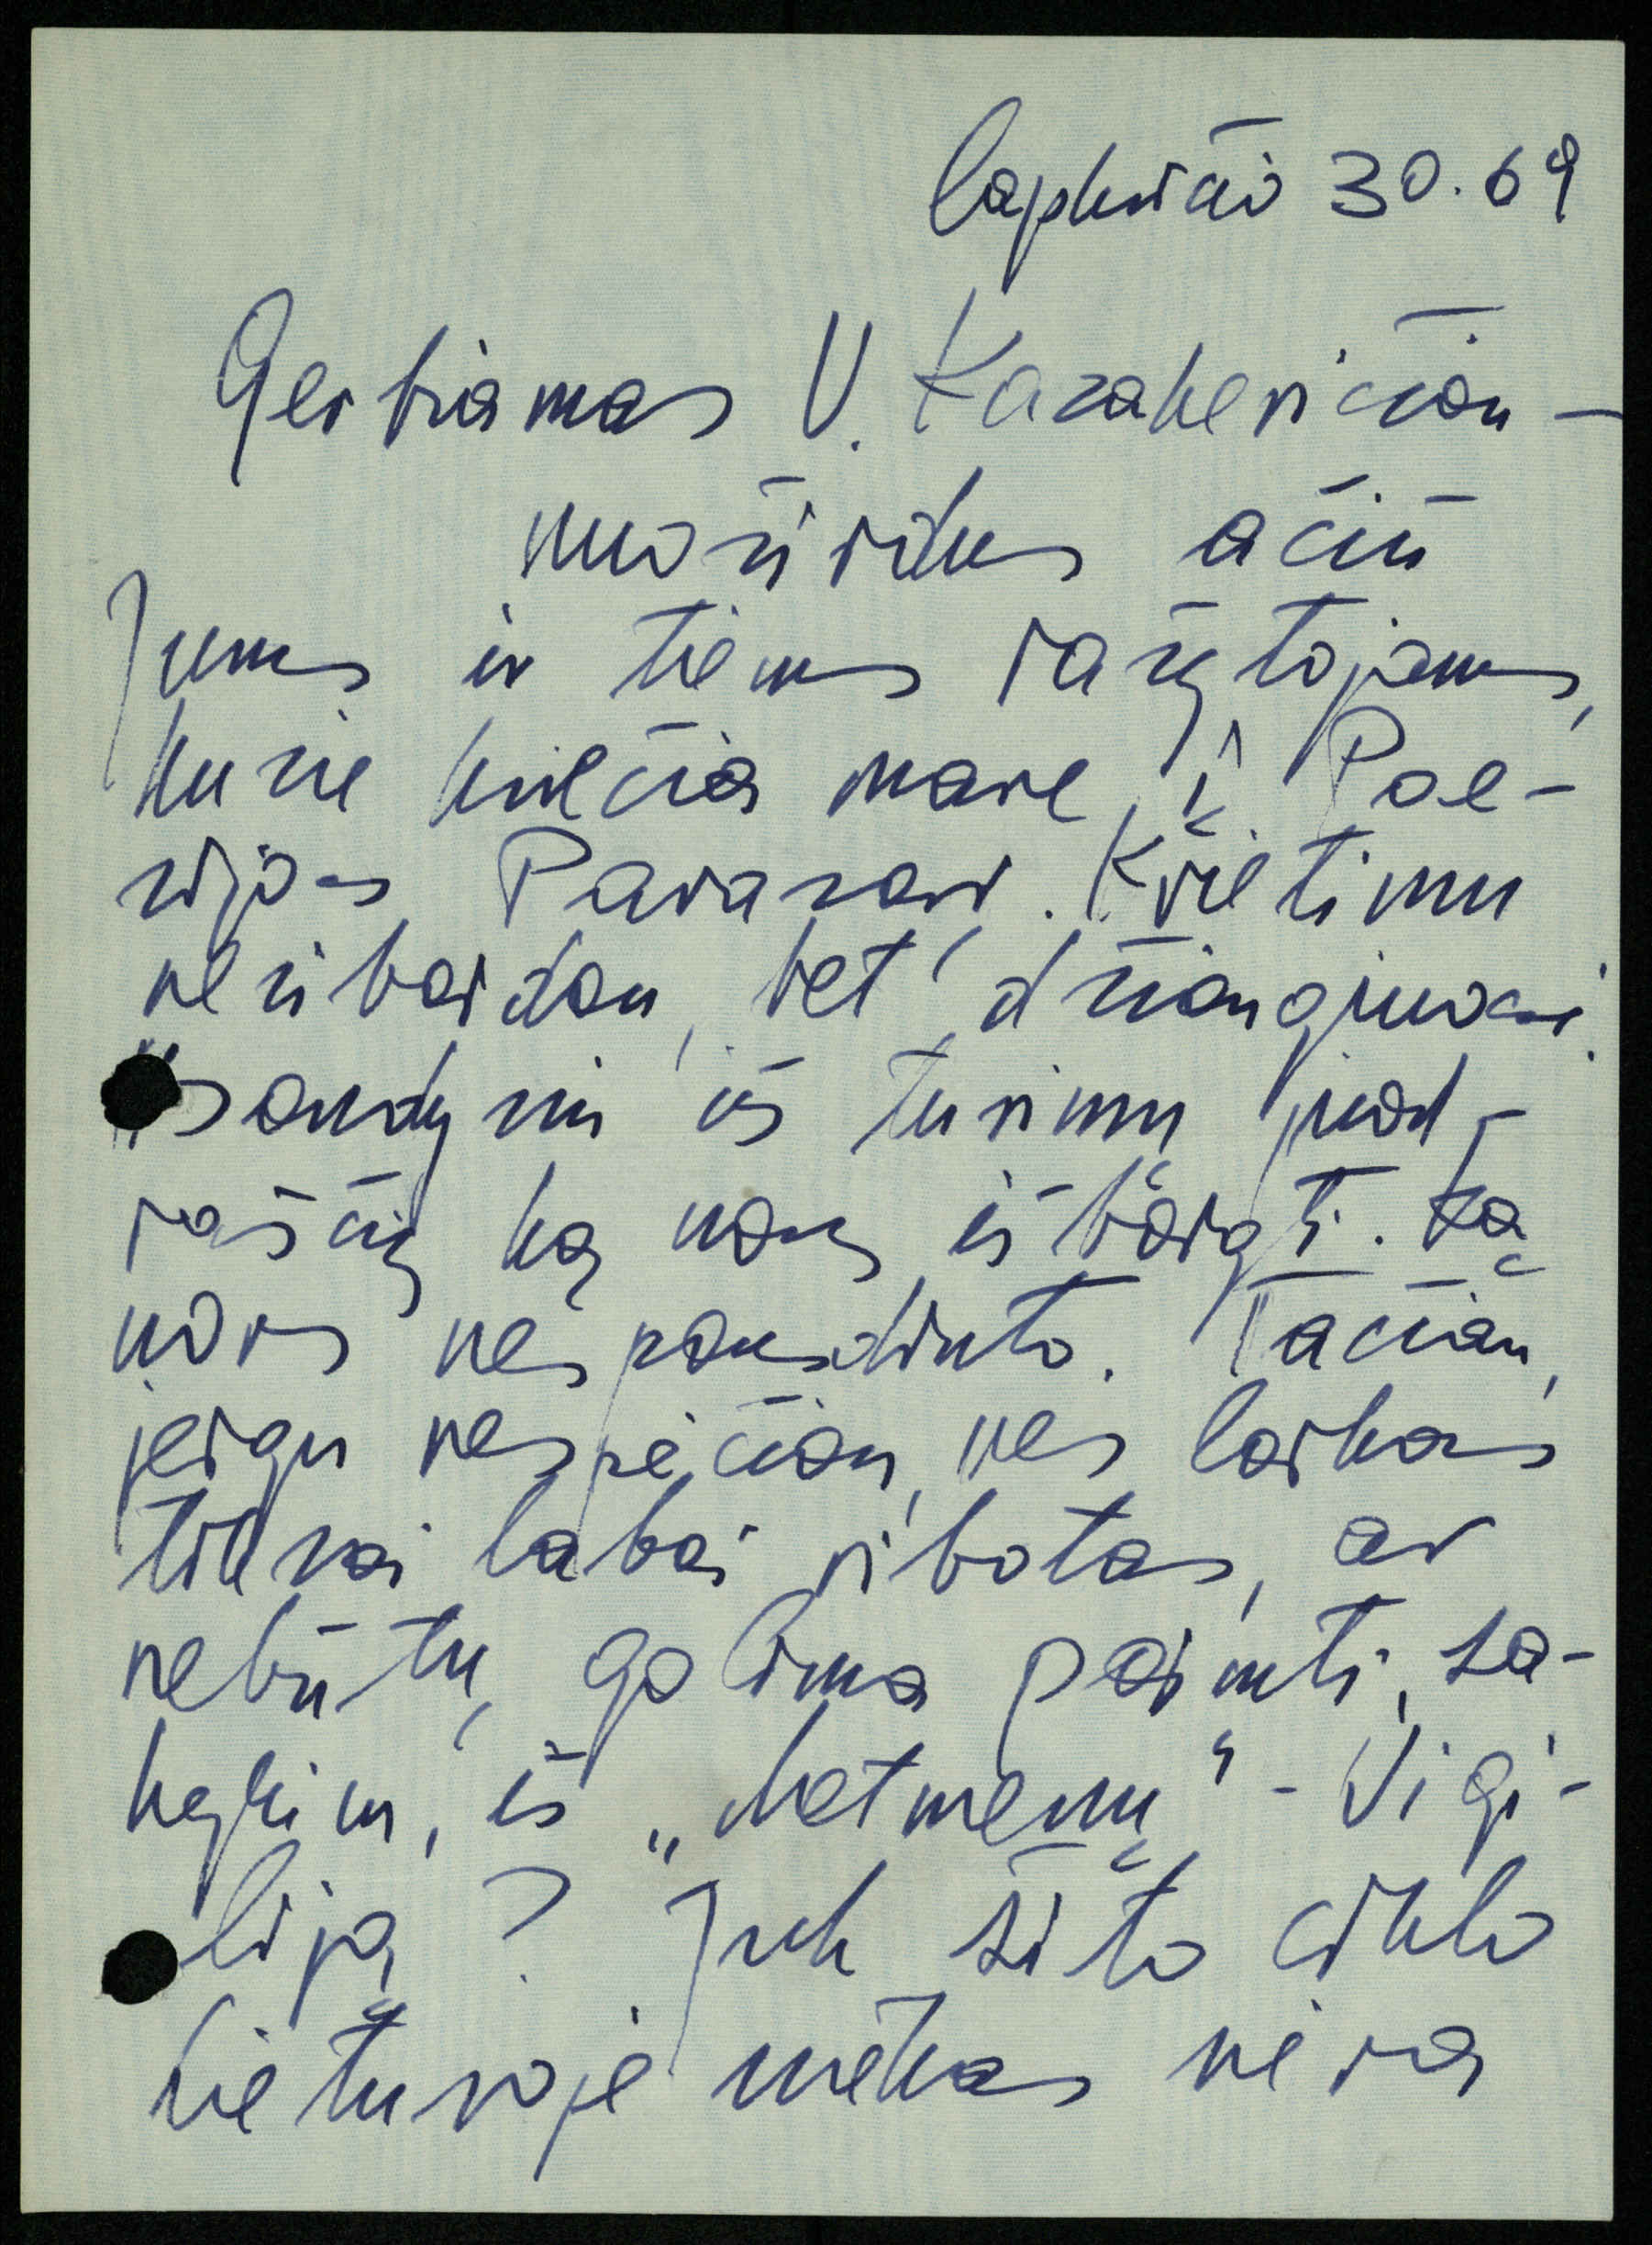 lapkričio 30. 69
Gerbiamas V. Kazakevičiau –
nuoširdus ačiū
Jums ir tiems rašytojams,
kurie kviečia mane į Poe-
zijos Pavasarį. Kvietimu
nesibaidau, bet džiaugiuosi.
Bandysiu iš turimų juod-
raščių ką nors išbaigti. Ką
nors nespausdinto. Tačiau,
jeigu nespėčiau, nes laikas
tikrai labai ribotas, ar
nebūtų galima paimti, sa-
kykim, iš „Metmenų" – Vigi-
liją? Juk šito ciklo
Lietuvoje niekas nėra